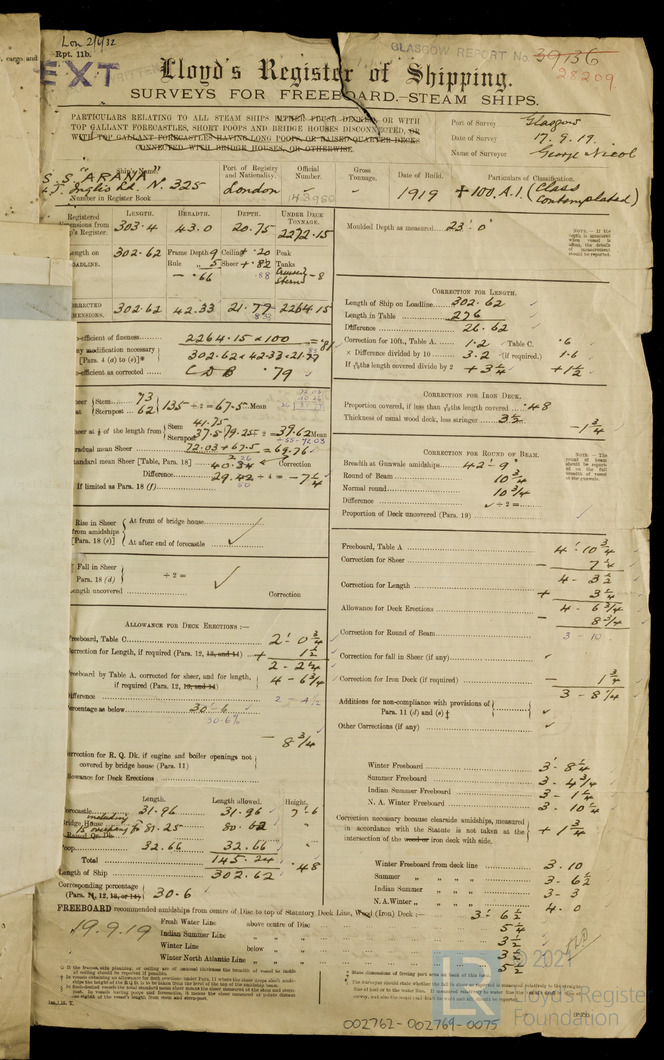 Lon 2/4/32
Rpt. 11b.
GLASGOW REPORT No. 39136
28209
EXT
Lloyd's Register of Shipping.
SURVEYS FOR FREEBOARD.—STEAM SHIPS.
PARTICULARS RELATING TO ALL STEAM SHIPS EITHER FLUSH DECKED, OR WITH
TOP GALLANT FORECASTLES, SHORT POOPS AND BRIDGE HOUSES DISCONNECTED, OR
WITH TOP GALLANT FORECASTLES HAVING LONG POOPS, OR RAISED QUARTER DECKS
CONNECTED WITH BRIDGE HOUSES, OR OTHERWISE.
Port of Survey Glasgow
Date of Survey 17.9.19.
Name of Surveyor George Nicol
Ship's Name. Port of Registry and Nationality. Official Number. Gross Tonnage. Date of Build. Particulars of Classification.
S.S. "ARANA"
Inglis Ld. No. 325 London 143950 1919 + 100.A.1. (Class Contemplated)
Number in Register Book
LENGTH. BREADTH. DEPTH. UNDER DECK TONNAGE.
303.4 43.0 20.75 2272.15
302.62 Frame Depth 9 Ceiling .20 Peak
Rule 5 Sheer + .82 Tanks
.66 .88 stern - 8
302.62 42.33 21.79 2264.15
Moulded Depth as measured 23'. 0"
CORRECTION FOR LENGTH.
Length of Ship on Loadline 302.62
Length in Table 276
Difference 26.62
Correction for 10ft., Table A. 1.2 Table C. .6
× Difference divided by 10 3.2 (if required.) 1.6
If 6/10ths length covered divide by 2 + 3 1/4 + 1 1/2
efficient of fineness 2264.15 × 100 = .81
any modification necessary 302.62 × 42.33 × 21.79
[Para. 4 (a) to (e)]*
efficient as corrected CDB .79
Stem 73
Sternpost 62 } 135 ÷ 2 = 67.5 Mean
Sheer at 1/8 of the length from Stem 41.75
Sternpost 37.5 79.25 ÷ 2 = 39.62 Mean
Gradual mean Sheer 72.03 + 67.5 = 69.76
Standard mean Sheer [Table, Para. 18] 40.34 Correction
Difference 29.42 ÷ 4 = - 7 1/4
If limited as Para. 18 (f)
CORRECTION FOR IRON DECK.
Proportion covered, if less than 6/10ths length covered .48
Thickness of usual wood deck, less stringer 3 1/2
- 1 3/4
CORRECTION FOR ROUND OF BEAM.
Breadth at Gunwale amidships 42'. 9"
Round of Beam 10 3/4
Normal round 10 3/4
Difference ✓ ÷ 2 =
Proportion of Deck uncovered (Para. 19)
Rise in Sheer from amidships [Para. 18 (e)] { At front of bridge house
At after end of forecastle ✓
Fall in Sheer Para. 18 (d) } ÷ 2 = ✓
Length uncovered Correction
Freeboard, Table A 4'. 10 3/4
Correction for Sheer - 7 1/4
4 - 3 1/2
Correction for Length + 3 1/4
4 - 6 3/4
Allowance for Deck Erections - 8 3/4
Correction for Round of Beam 3 - 10
Correction for fall in Sheer (if any) ✓
Correction for Iron Deck (if required) - 1 3/4
3 - 8 1/4
Additions for non-compliance with provisions of Para. 11 (d) and (e) ‡ ✓
Other Corrections (if any) ✓
ALLOWANCE FOR DECK ERECTIONS :—
Freeboard, Table C 2'. 0 3/4
Correction for Length, if required (Para. 12, 13, and 14) + 1 1/2
2 - 2 1/4
Freeboard by Table A, corrected for sheer, and for length, if required (Para. 12, 13, and 14) 4 - 6 3/4
Difference 2 - 4 1/2
Percentage as below 30.6
30.6%
- 8 3/4
Correction for R. Q. Dk. if engine and boiler openings not covered by bridge house (Para. 11)
Allowance for Deck Erections
Length. Length allowed. Height.
Forecastle 31.96 31.96 7'.6
Bridge House including 15 overhang 81.25 80.62
Raised Qr. Dk.
Poop 32.66 32.66
Total 145.24
Length of Ship 302.62 .48
Corresponding percentage (Para. 11, 12, 13, or 14) } 30.6
Winter Freeboard 3'- 8 1/4
Summer Freeboard 3 - 4 3/4
Indian Summer Freeboard 3 - 1 1/4
N. A. Winter Freeboard 3 - 10 1/4
Correction necessary because clearside amidships, measured in accordance with the Statute is not taken at the intersection of the wood or iron deck with side. + 1 3/4
Winter Freeboard from deck line 3.10
Summer " " " " 3 - 6 1/2
Indian Summer " " " 3 - 3
N. A. Winter " " " 4. 0
FREEBOARD recommended amidships from centre of Disc to top of Statutory Deck Line, Wood (Iron) Deck :— 3'- 6 1/2
19.9.19
Fresh Water Line above centre of Disc 5 1/4
Indian Summer Line " " 3 1/2
Winter Line below " 3 1/2
Winter North Atlantic Line " " 5 1/2
© 2021
Lloyd's Register
Foundation
002762-002769-0075